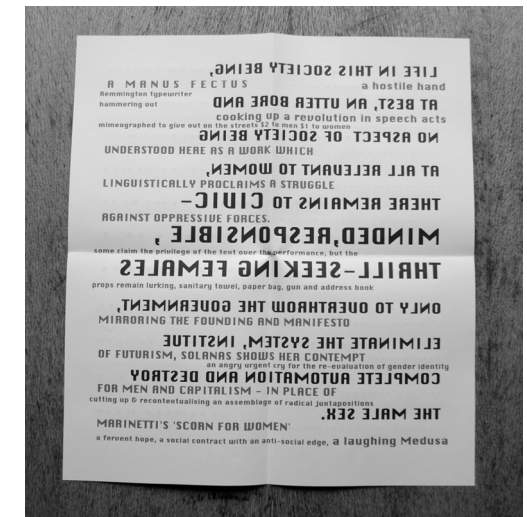 LIFE IN THIS SOCIETY BEING,
A MANUS FECTUS a hostile hand
Remmington typewriter
hammering out AT BEST, AN UTTER BORE AND
cooking up a revolution in speech acts
mimeographed to give out on the streets $2 to men $1 to women
NO ASPECT OF SOCIETY BEING
UNDERSTOOD HERE AS A WORK WHICH
AT ALL RELEVANT TO WOMEN,
LINGUISTICALLY PROCLAIMS A STRUGGLE
THERE REMAINS TO CIVIC-
AGAINST OPPRESSIVE FORCES.
MINDED,RESPONSIBLE ,
some claim the privilege of the text over the performance, but the
THRILL-SEEKING FEMALES
props remain lurking, sanitary towel, paper bag, gun and address book
ONLY TO OVERTHROW THE GOVERNMENT,
MIRRORING THE FOUNDING AND MANIFESTO
ELIMINATE THE SYSTEM, INSTITUE
OF FUTURISM, SOLANAS SHOWS HER CONTEMPT
an angry urgent cry for the re-evaluation of gender identity
COMPLETE AUTOMATION AND DESTROY
FOR MEN AND CAPITALISM - IN PLACE OF
cutting up & recontextualising an assemblage of radical juxtapositions
THE MALE SEX.
MARINETTI'S 'SCORN FOR WOMEN'
a fervent hope, a social contract with an anti-social edge, a laughing Medusa